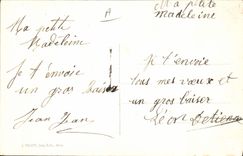 Ma petite
Madeleine
Je t'envoie
un gros baiser
Jean Jan
A
Ma petite
madeleine
Je t'envoie
tous mes vœux et
un gros baiser
Léon